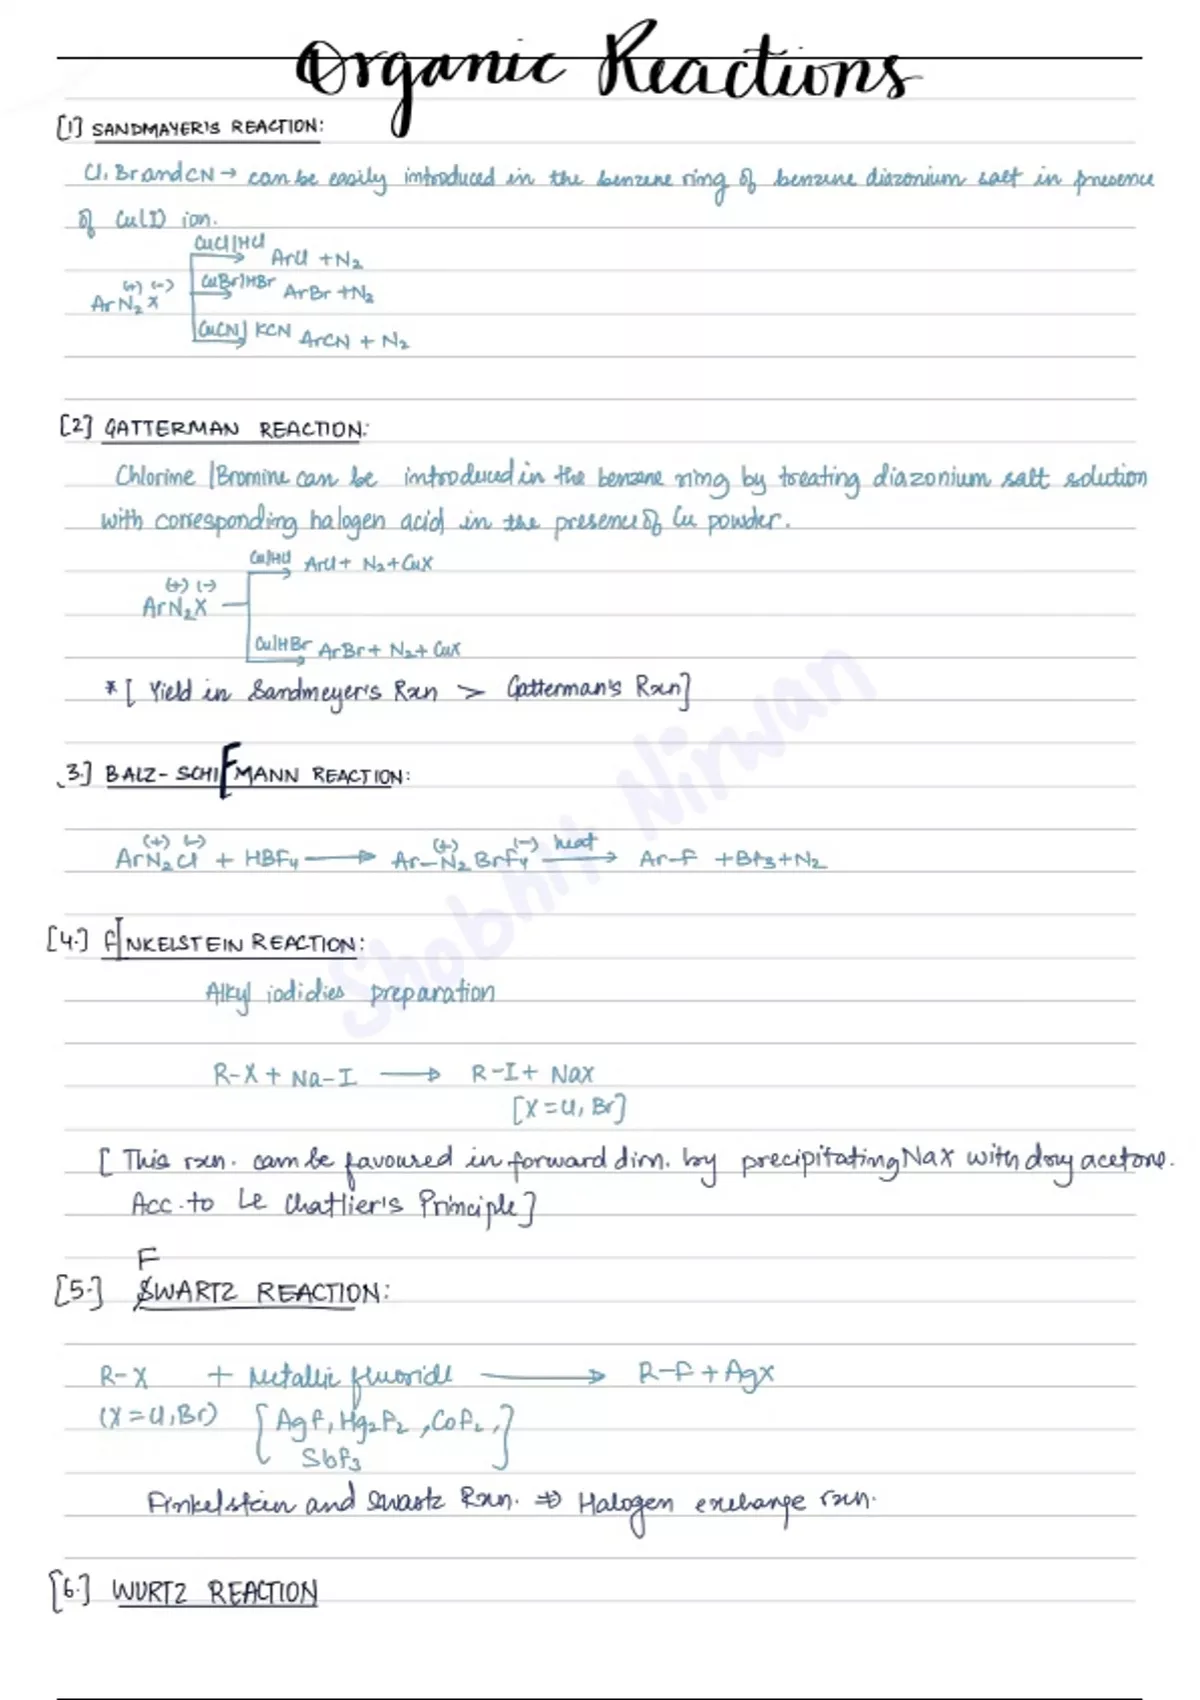 Organic Reactions
[1] SANDMAYER'S REACTION:
Cl, Br and CN → can be easily introduced in the benzene ring of benzene diazonium salt in presence
of Cu(I) ion.
CuCl|HCl ArCl + N2
(+) (-) CuBr|HBr ArBr + N2
ArN2X
CuCN| KCN ArCN + N2
[2] GATTERMAN REACTION:
Chlorine |Bromine can be introduced in the benzene ring by treating diazonium salt solution
with corresponding halogen acid in the presence of Cu powder.
Cu|HCl ArCl + N2 + CuX
(+) (-)
ArN2X
Cu|HBr ArBr + N2 + CuX
*[ Yield in Sandmeyer's Rxn > Gatterman's Rxn]
3.] BALZ-SCHIFMANN REACTION:
(+) (-) (+) (-) heat
ArN2Cl + HBF4 → Ar-N2 BrF4 → Ar-F + BF3 + N2
[4.] FINKELSTEIN REACTION:
Alkyl iodidies preparation
R-X + Na-I → R-I + NaX
[X = Cl, Br]
[ This rxn. can be favoured in forward dirn. by precipitating NaX with dry acetone.
Acc. to Le Chatlier's Principle]
F
[5.] SWARTZ REACTION:
R-X + Metallic fluoride → R-F + AgX
(X = Cl, Br) {AgF, Hg2F2, CoF2,}
SbF3
Finkelstein and Swartz Rxn. ⇒ Halogen exchange rxn.
[6.] WURTZ REACTION
Shobhit Nirwan